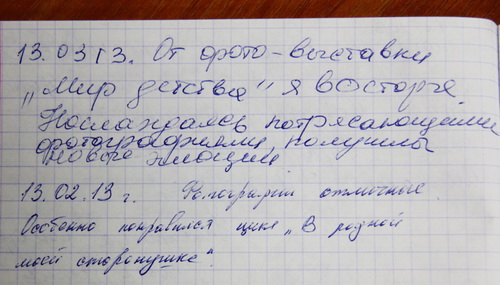 13.0313. От фото-выставки
„Мир детства" я в восторге
Наслаждаясь потрясающими
фотографиями, получила
новые эмоции
13.02.13 г. Фотографии отличные.
Особенно понравился цикл „В родной
моей сторонушке".